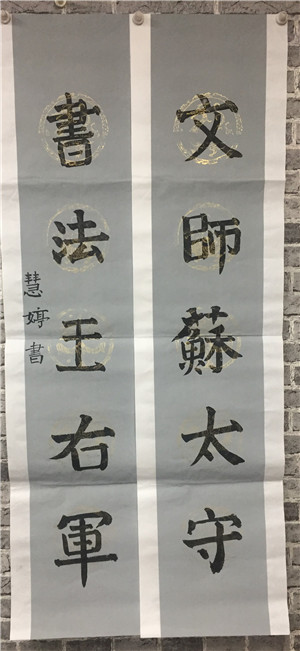 文師蘇太守
書法王右軍
慧婷書